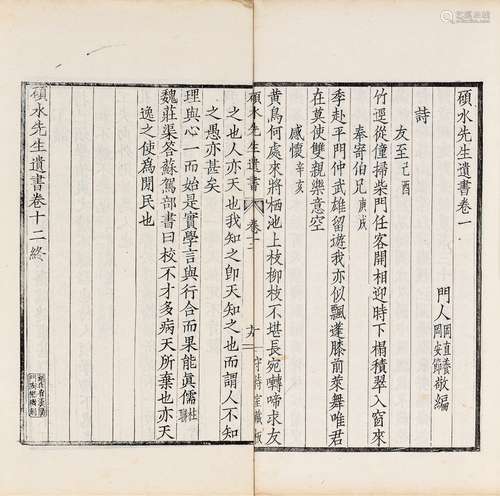 碩水先生遺書卷一
門人岡直養
岡安節敬編
詩
友至己酉
竹逕從僮掃柴門任客開相迎時下榻積翠入窗來
奉寄伯兄庚戌
季赴平門仲武雄留遊我亦似飄蓬膝前萊舞唯君
在莫使雙親樂意空
感懷辛亥
黃鳥何處來將栖池上枝柳枝不堪長宛囀啼求友
碩水先生遺書
卷十二
之也人亦天也我知之卽天知之也而謂人不知
之愚亦甚矣
理與心一而始是實學言與行合而果能眞儒
魏莊渠答蘇駕部書曰校不才多病天所棄也亦天
逸之使爲閒民也
碩水先生遺書卷十二終